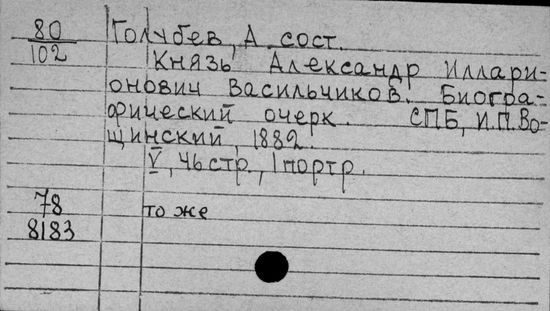 80 Голубев, А. сост.
102 Князь Александр Иллари-
онович Васильчиков. Биогра-
фический очерк. СПБ, И.П.Во-
щинский, 1882.
V, 46 стр., 1 портр.
78 то же
8183